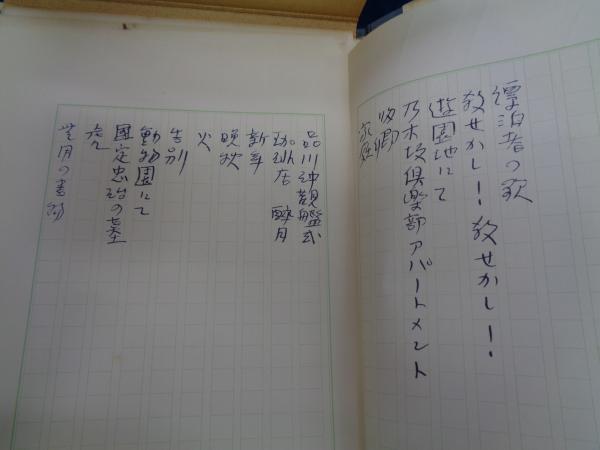 漂泊者の歌
殺せかし！殺せかし！
遊園地にて
乃木坂倶楽部アパートメント
帰郷
家庭
品川沖観艦式
珈琲店 醉月
新年
晩秋
火
告別
動物園にて
國定忠治の墓
虎
無用の書物